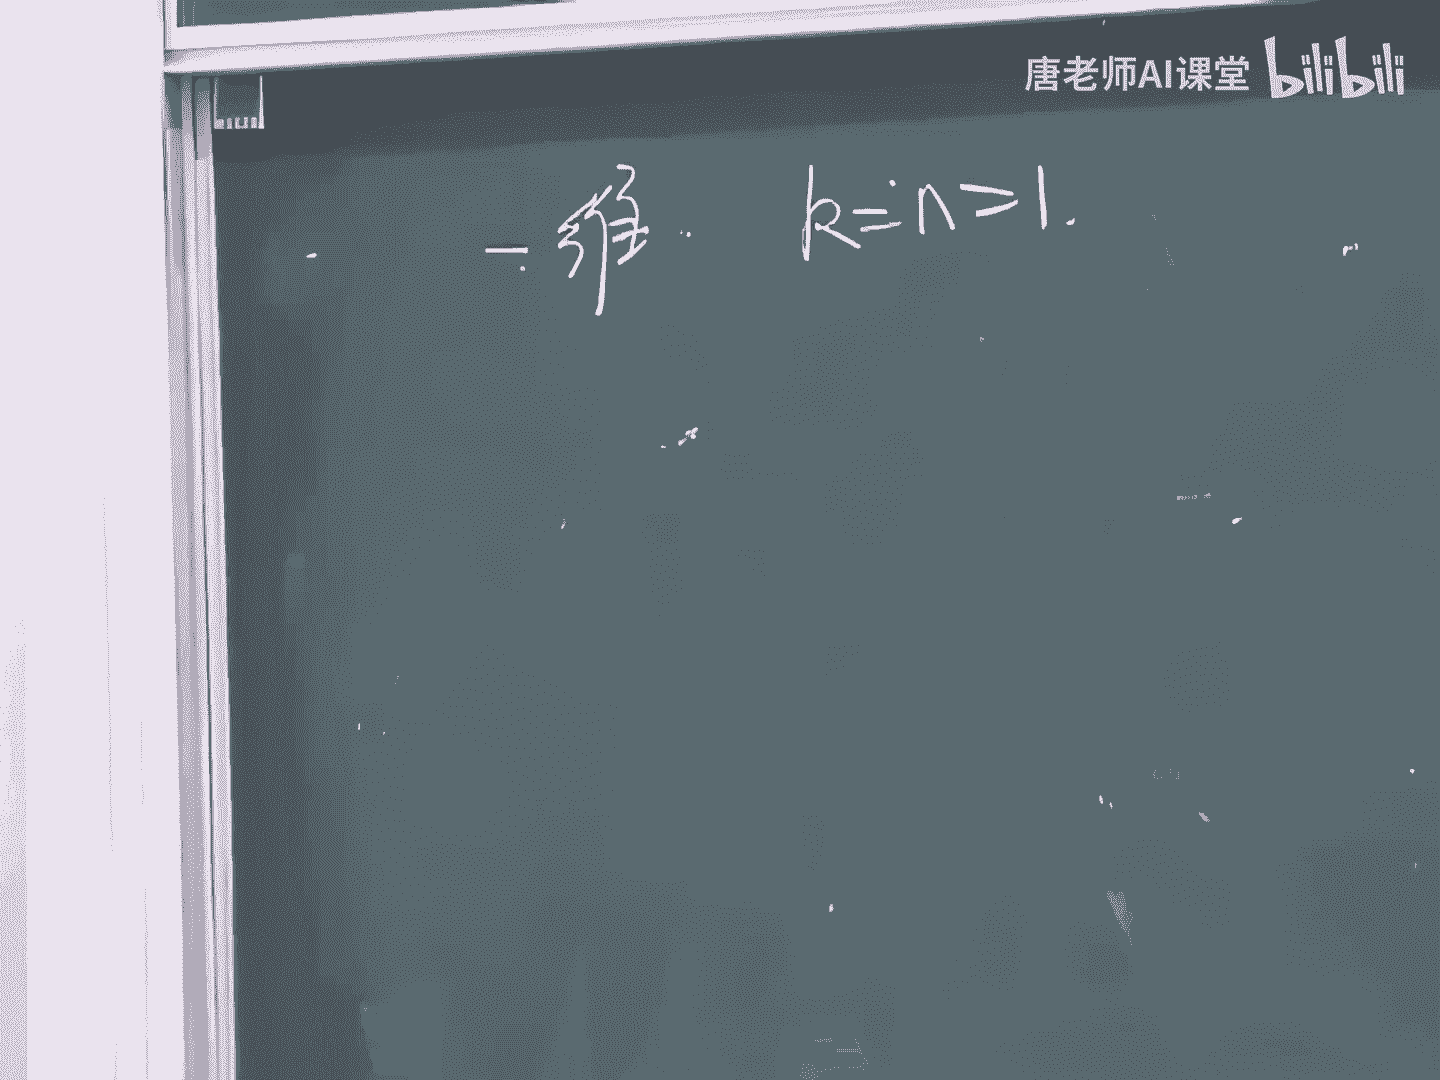 唐老师AI课堂 bilibili
一维 k=n=1.